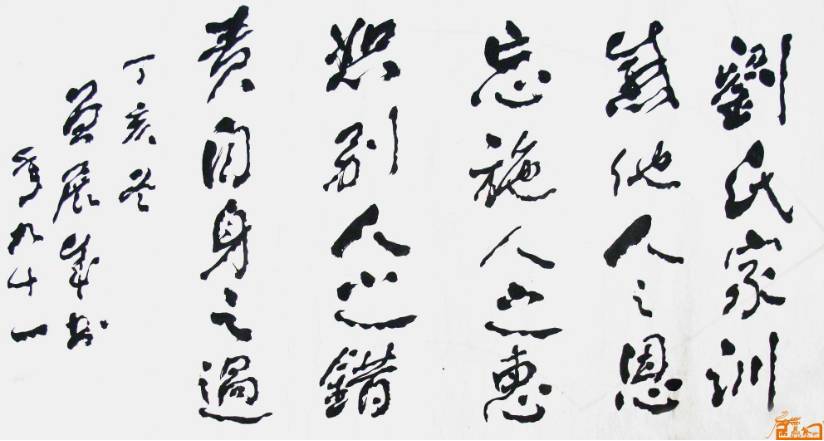 劉氏家訓
感他人之恩
忘施人之惠
恕别人之錯
責自身之過
丁亥冬
展書
年九十一